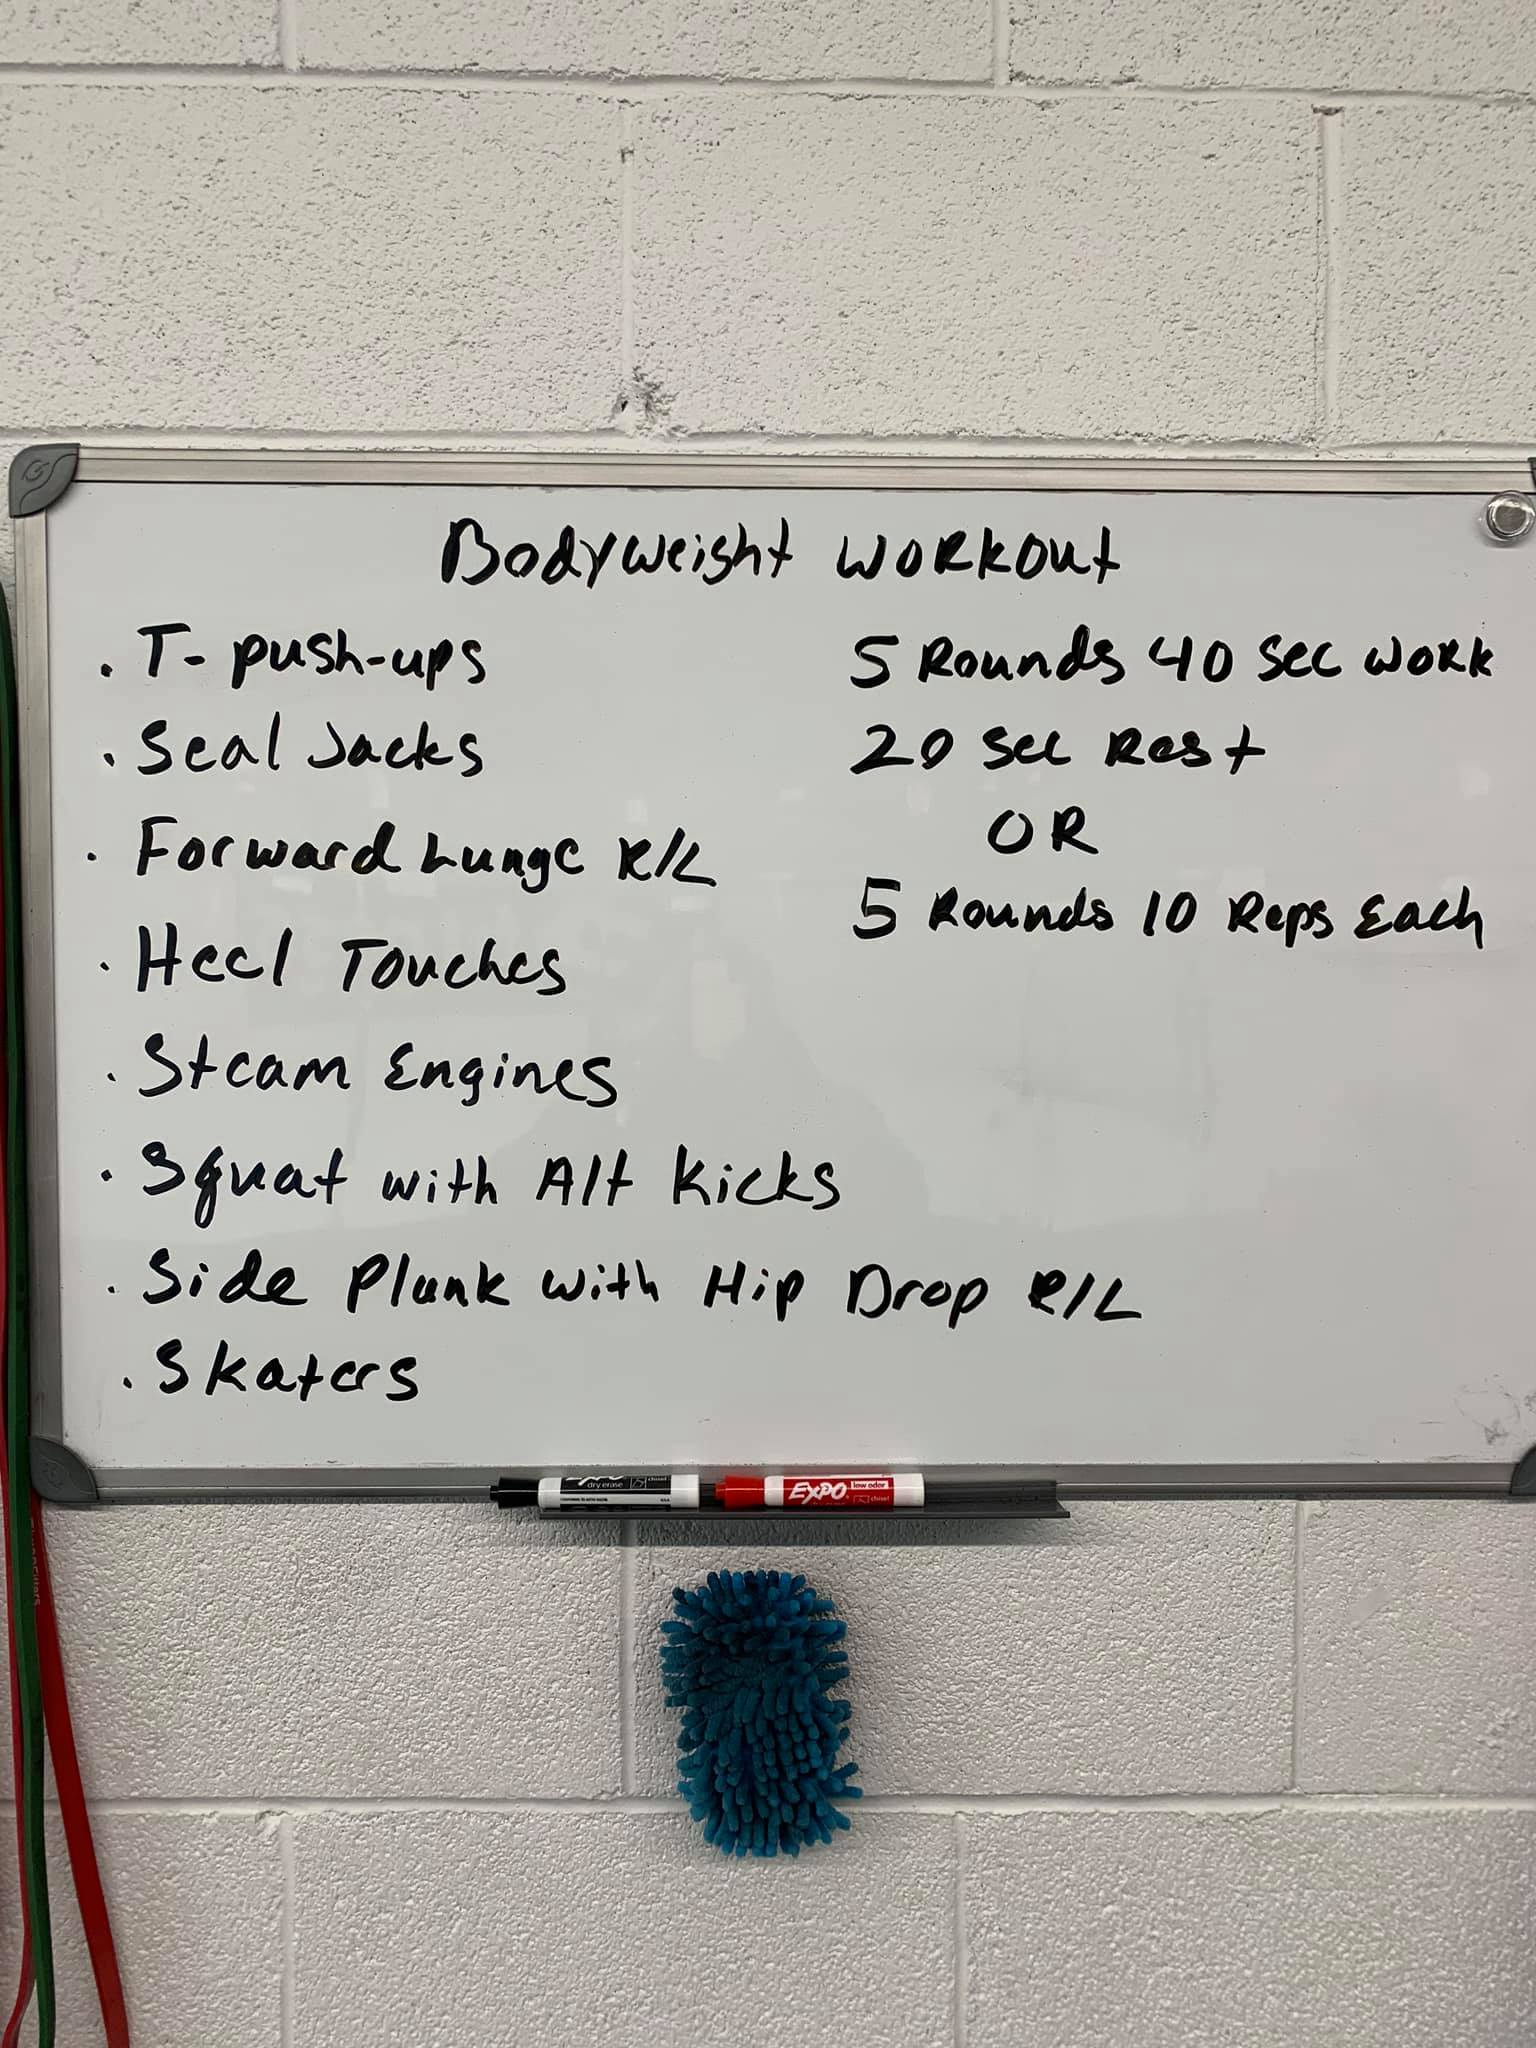 Bodyweight Workout
. T-push-ups
. Seal Jacks
. Forward Lunge R/L
. Heel Touches
. Steam Engines
. Squat with Alt Kicks
. Side Plank with Hip Drop R/L
. Skaters
5 Rounds 40 Sec Work
20 Sec Rest
OR
5 Rounds 10 Reps Each
EXPO
dry erase
EXPO
low odor